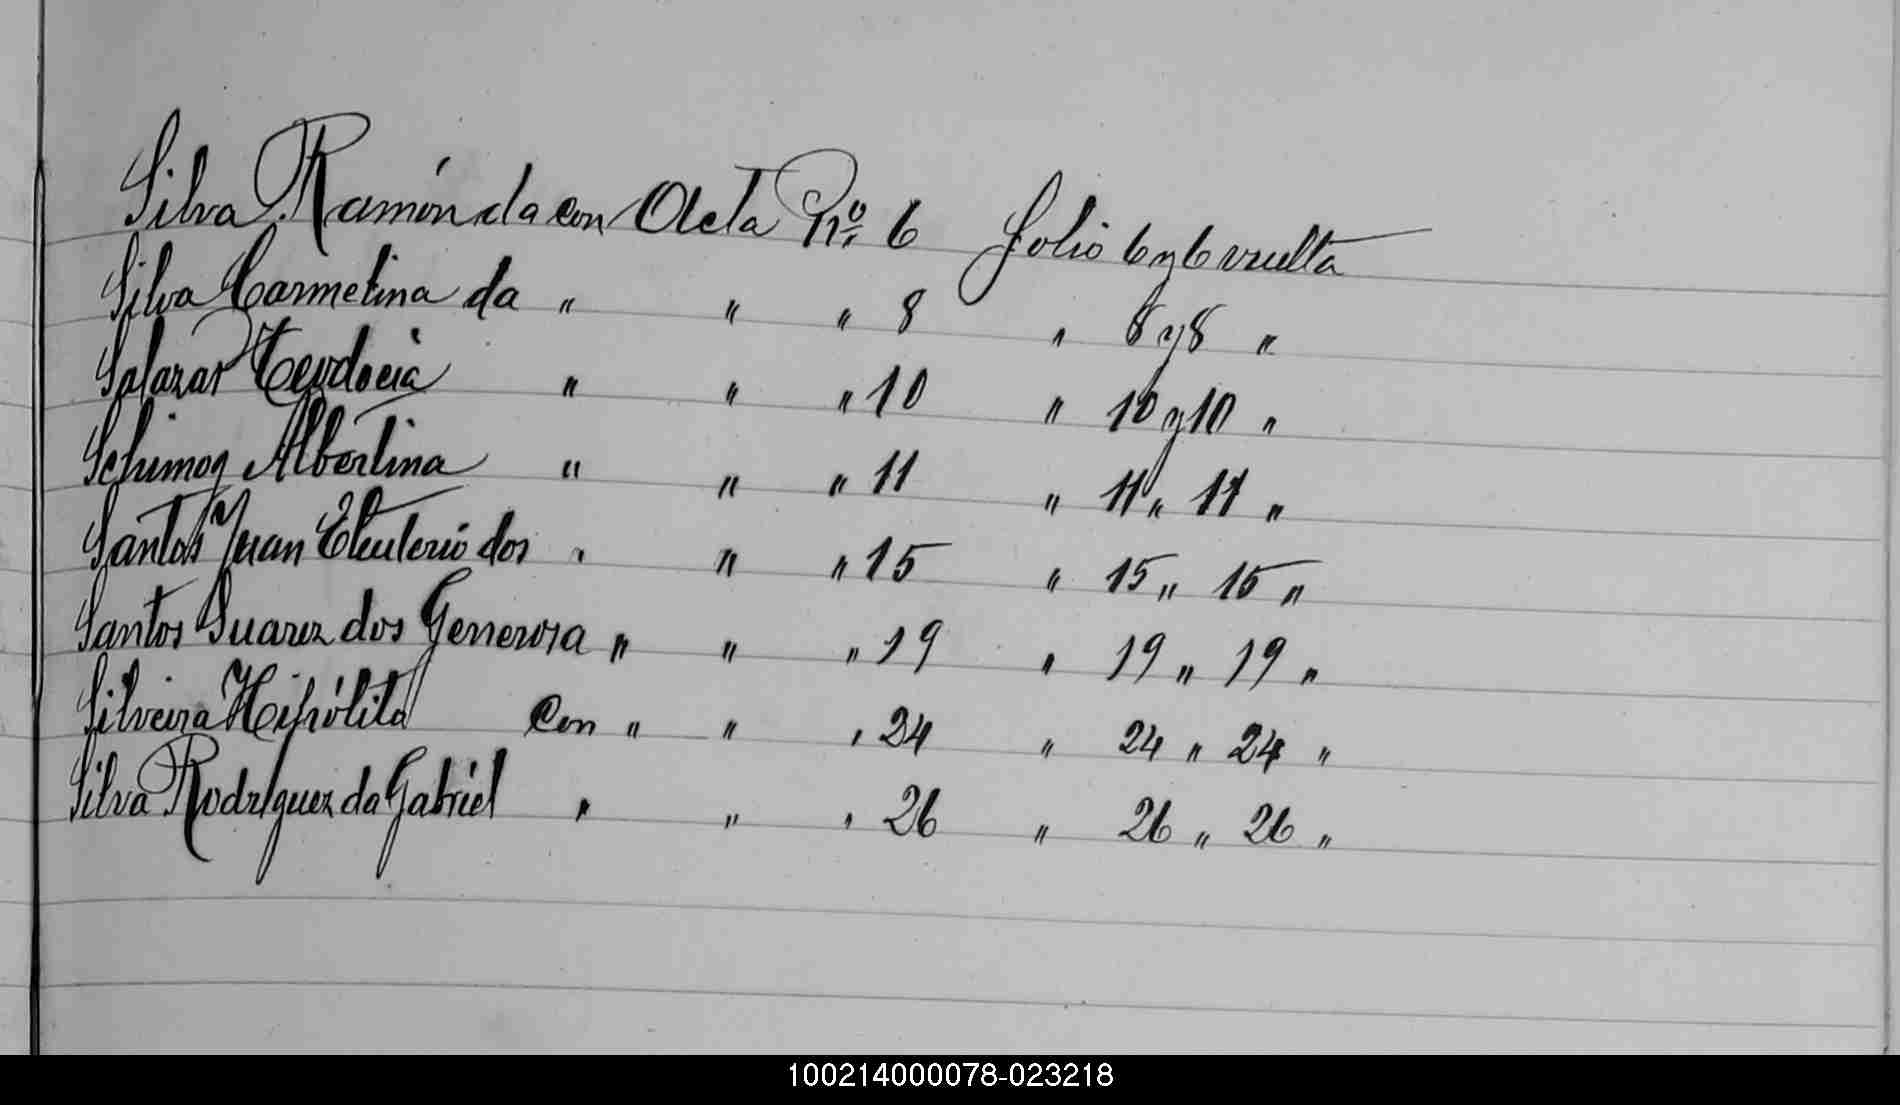 Silva Ramón da con Acta Nº 6 folio 6 y 6 vuelta
Silva Carmelina da " " " 8 " 8 y 8 "
Salazar Teodocia " " " 10 " 10 y 10 "
Schimoq Albertina " " " 11 " 11 " 11 "
Santos Juan Eleuterio dos " " " 15 " 15 " 15 "
Santos Suarez dos Generosa " " " 19 " 19 " 19 "
Silveira Hipólita con " " " 24 " 24 " 24 "
Silva Rodriguez da Gabriel " " " 26 " 26 " 26 "
100214000078-023218